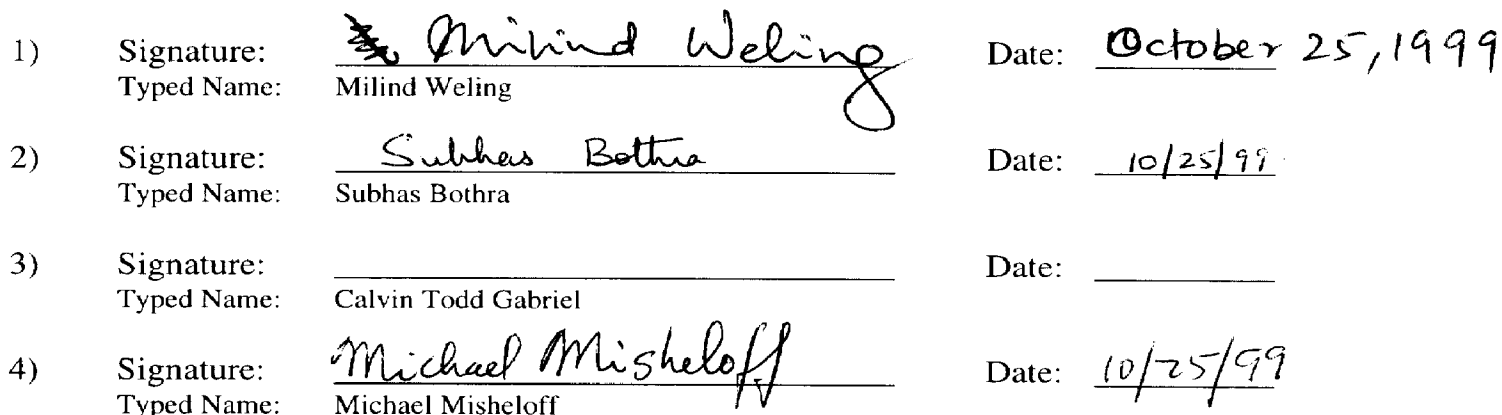 1) Signature: Milind Weling Date: October 25, 1999
Typed Name: Milind Weling
2) Signature: Subhas Bothra Date: 10/25/99
Typed Name: Subhas Bothra
3) Signature: Date:
Typed Name: Calvin Todd Gabriel
4) Signature: Michael Misheloff Date: 10/25/99
Typed Name: Michael Misheloff